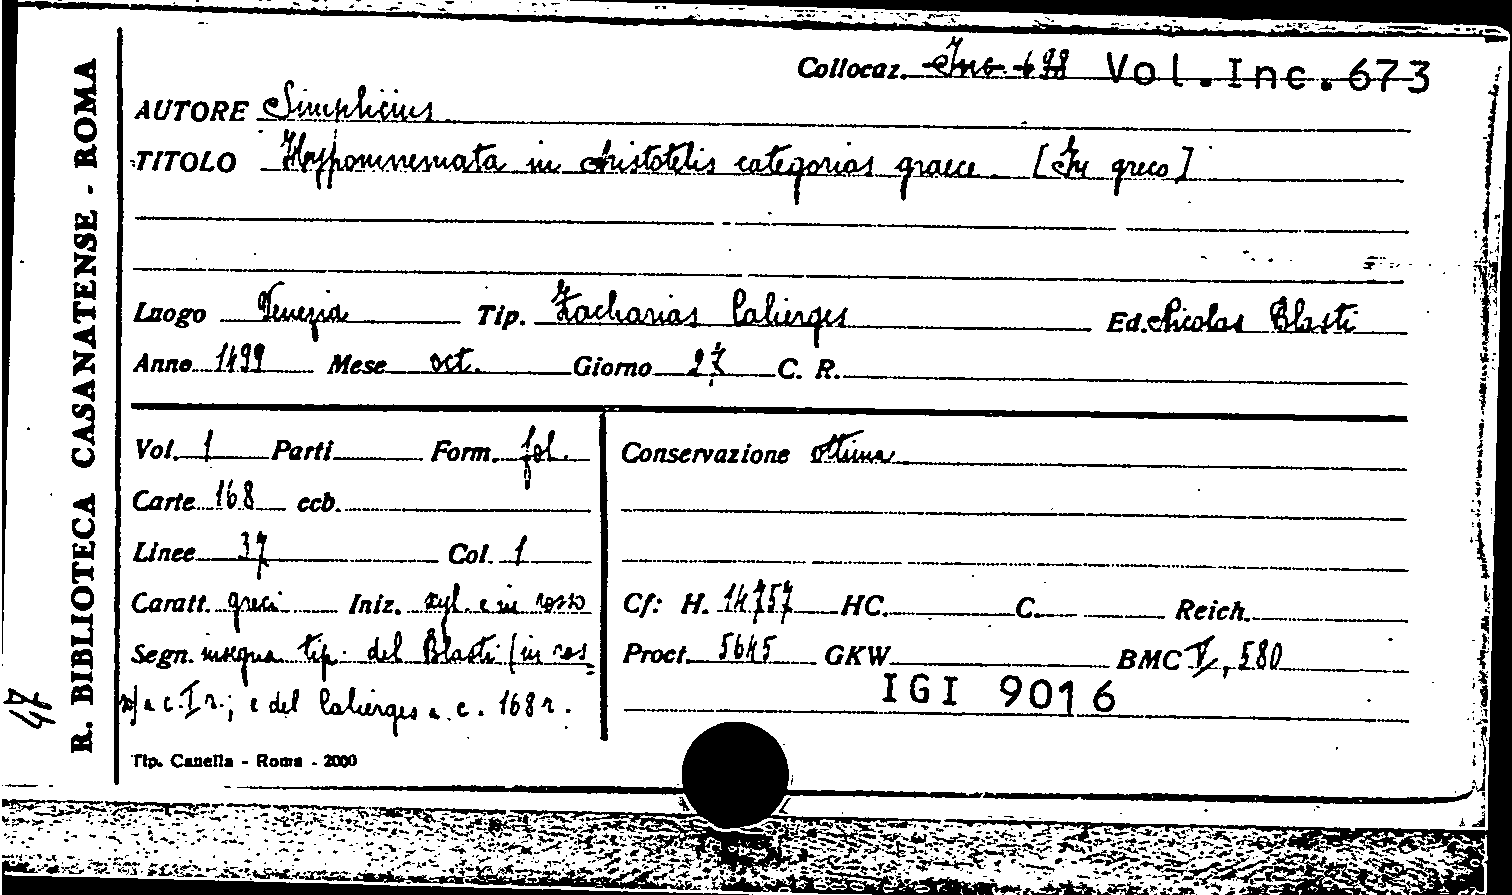 Collocaz. Inc. 498 Vol.Inc.673
AUTORE Simplicius
TITOLO Hyppomnemata in Aristotelis categorias graece [In greco]
Luogo Venezia Tip. Zacharias Calierges Ed. Nicolas Blasti
Anno 1499 Mese oct. Giorno 27 C. R.
Vol. 1 Parti Form. fol. Conservazione ottima
Carte 168 ccb.
Linee 37 Col. 1
Caratt. greci Iniz. xyl. e in rosso Cf: H. 14757 HC. C. Reich.
Segn. insegna tip. del Blasti (in ros Proct. 5645 GKW BMC V, 580
so) a c. I r.; e del Calierges a c. 168 r. IGI 9016
Tip. Canella - Roma - 2000
R. BIBLIOTECA CASANATENSE - ROMA
47